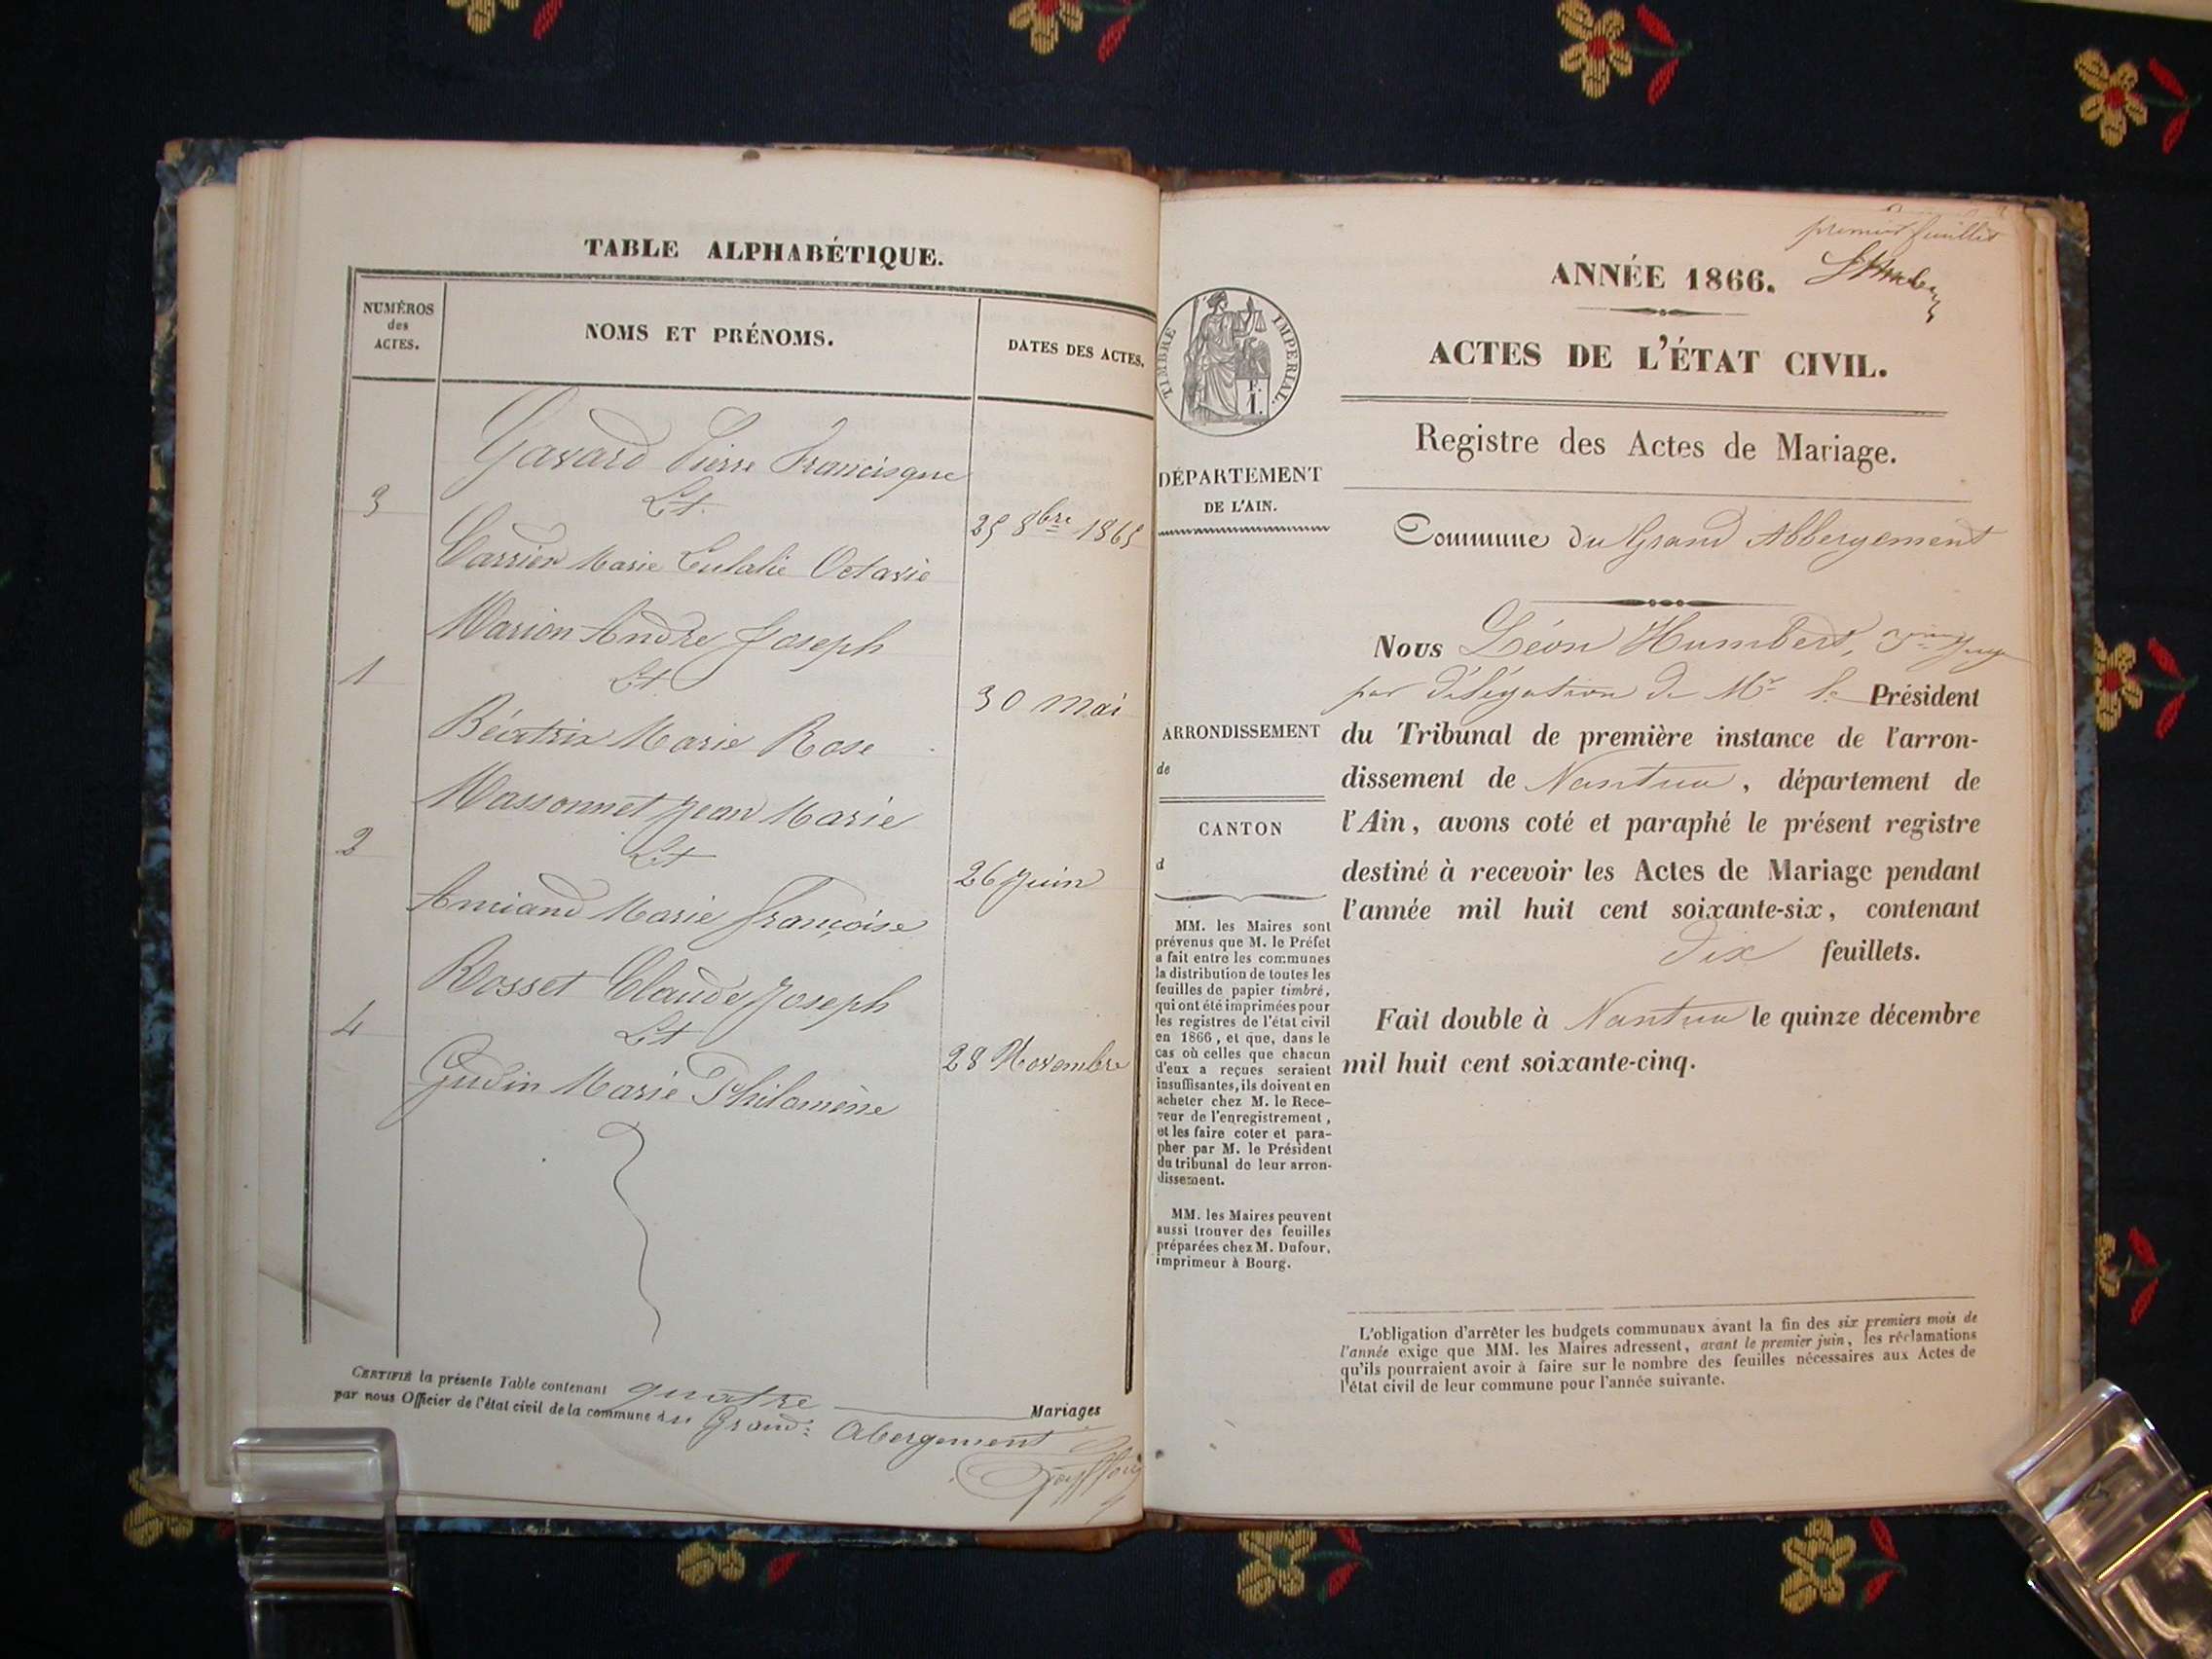 TABLE ALPHABÉTIQUE.
NUMÉROS
des
ACTES.
NOMS ET PRÉNOMS.
DATES DES ACTES.
Gavard Pierre Francisque
3
Et.
25 8bre 1865
Carrier Marie Eulalie Octavie
Marion André Joseph
1
Et
30 mai
Béatrix Marie Rose
Massonnet Jean Marie
2
Et
26 Juin
Amiand Marie Françoise
Rosset Claude Joseph
4
Et
28 Novembre
Gudin Marie Philomène
CERTIFIÉ la présente Table contenant quatre Mariages
par nous Officier de l'état civil de la commune du Grand: Abergement
premier feuillet
ANNÉE 1866.
ACTES DE L'ÉTAT CIVIL.
Registre des Actes de Mariage.
Commune du Grand Abbergement
Nous Léon Humbert, Juge
par délégation de Mr le Président
du Tribunal de première instance de l'arron-
dissement de Nantua, département de
l'Ain, avons coté et paraphé le présent registre
destiné à recevoir les Actes de Mariage pendant
l'année mil huit cent soixante-six, contenant
dix feuillets.
Fait double à Nantua le quinze décembre
mil huit cent soixante-cinq.
TIMBRE IMPERIAL.
E.
I.
DÉPARTEMENT
DE L'AIN.
ARRONDISSEMENT
de
CANTON
d
MM. les Maires sont
prévenus que M. le Préfet
a fait entre les communes
la distribution de toutes les
feuilles de papier timbré,
qui ont été imprimées pour
les registres de l'état civil
en 1866, et que, dans le
cas où celles que chacun
d'eux a reçues seraient
insuffisantes, ils doivent en
acheter chez M. le Rece-
veur de l'enregistrement,
et les faire coter et para-
pher par M. le Président
du tribunal de leur arron-
dissement.
MM. les Maires peuvent
aussi trouver des feuilles
préparées chez M. Dufour,
imprimeur à Bourg.
L'obligation d'arrêter les budgets communaux avant la fin des six premiers mois de
l'année exige que MM. les Maires adressent, avant le premier juin, les réclamations
qu'ils pourraient avoir à faire sur le nombre des feuilles nécessaires aux Actes de
l'état civil de leur commune pour l'année suivante.